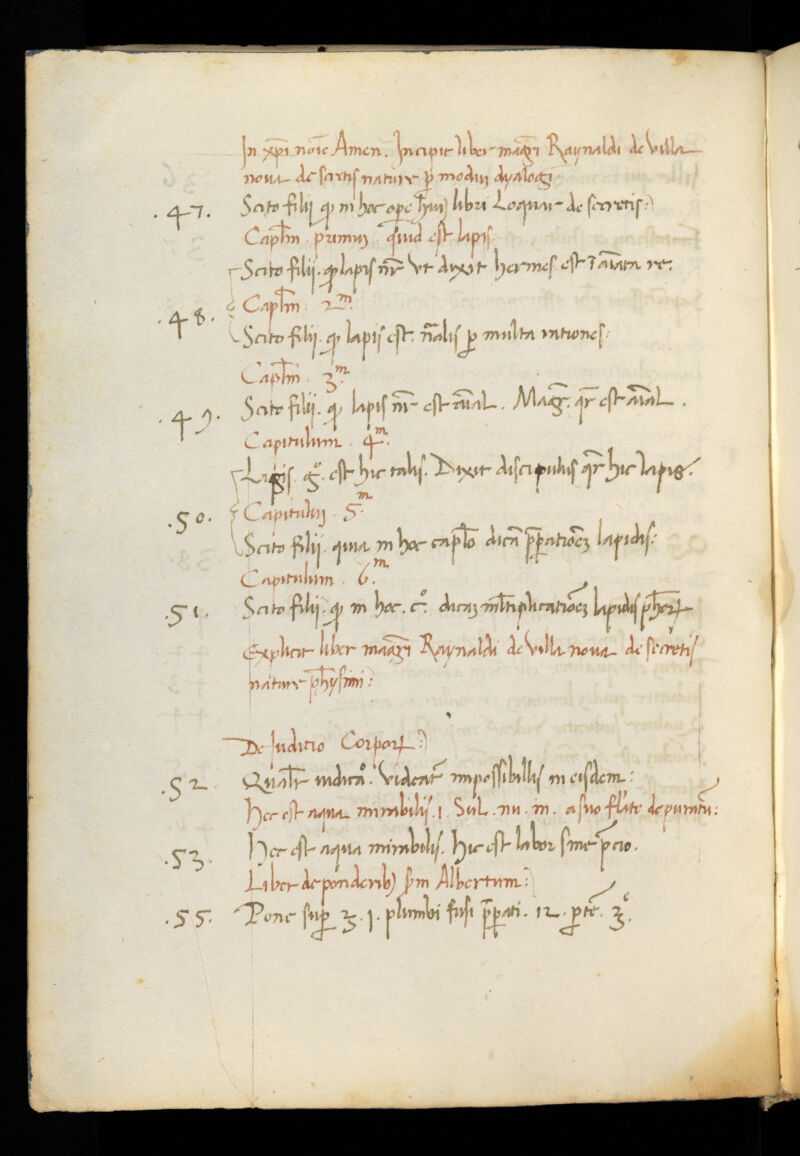 In xp̄i noīe Amen. Incipit liber magr̄i Raynaldi de Villa
noua de secretis nature p̄ modū dyalogi.
.47. Scito filij qꝫ in hoc ope libri Loquar de secretis:
Capl̄m primuꝫ. quid est lapis.
Scito filij. qꝫ lapis nr̄ vt dixit hermes est ī aīata re.
.48. Capl̄m. 2m.
Scito filij. qꝫ lapis est. nālis p̄ multa
Capl̄m. 3m.
.49. Scito filij. qꝫ lapis nr̄ est aīal. Magr̄. qr̄ est aīal.
Capitulum. 4m.
Lapis. gͦ. est hic talis. Dixit discipulus qr̄ hic lapis.
.50. Capitulū. 5m.
Scito filij. quia in hoc caplō dicā p̄patioēꝫ lapidis:
Capitulum. 6m.
.51. Scito filij. qꝫ in hoc. cͦ. dicaꝫ ml̄tiplicatioēꝫ lapidis pħoꝝ
Explicit liber magr̄i Raynaldi de Villa noua de secretis
nature
De Juditio Corpoꝝ:
.52. Qualr̄ iudicia. Videat impossibillis in eisdem:
Hec est aqua mirabilis. 1. Sul. uu. m. a suo flāte depuratū:
.53. Hec est aqua mirabilis. hic est labor sine p̄cio.
Liber de ponderibꝫ scd̄m Albertum:
.55. Pone sup̄ ʒ. j. plumbi fusi p̄pati. 12. ptē. ʒͦ.